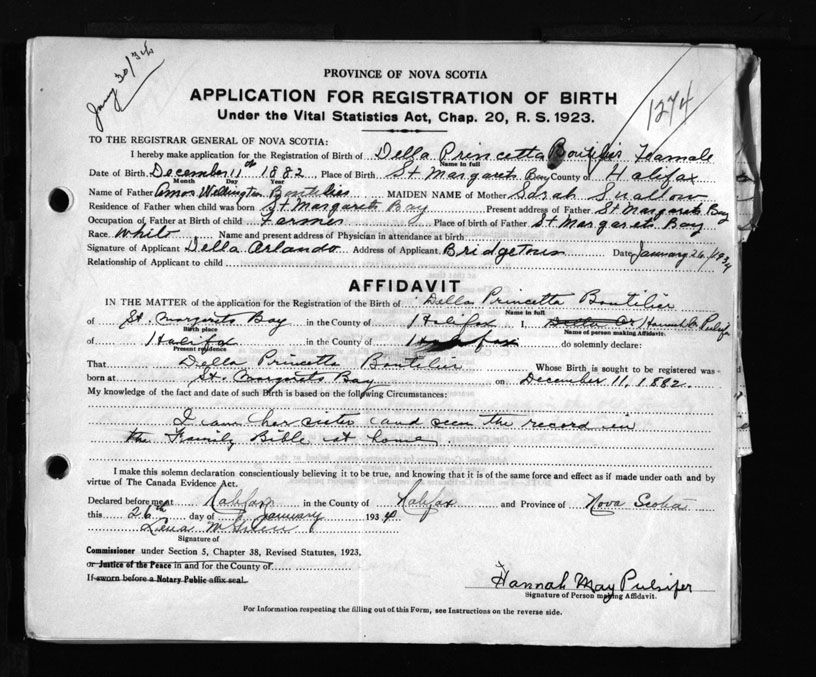 Jany 30/34
1274
PROVINCE OF NOVA SCOTIA
APPLICATION FOR REGISTRATION OF BIRTH
Under the Vital Statistics Act, Chap. 20, R. S. 1923.
TO THE REGISTRAR GENERAL OF NOVA SCOTIA:
I hereby make application for the Registration of Birth of Della Princetta Boutilier Female
Name in full
Date of Birth December 11th 1882 Place of Birth St Margarets Bay County of Halifax
Month Day Year
Name of Father Amos Wellington Boutilier MAIDEN NAME of Mother Sarah
Residence of Father when child was born St Margarets Bay Present address of Father St Margarets Bay
Occupation of Father at Birth of child Farmer Place of birth of Father St Margarets Bay
Race White Name and present address of Physician in attendance at birth
Signature of Applicant Della Orlando Address of Applicant Bridgetown Date January 26/1934
Relationship of Applicant to child
AFFIDAVIT
IN THE MATTER of the application for the Registration of the Birth of Della Princetta Boutilier
Name in full
of St. Margarets Bay in the County of Halifax I, Hannah M Pulsifer
Birth place Name of person making Affidavit.
of Halifax in the County of Halifax do solemnly declare:
Present residence
That Della Princetta Boutilier Whose Birth is sought to be registered was
born at St. Margarets Bay on December 11, 1882.
My knowledge of the fact and date of such Birth is based on the following Circumstances:
I am her sister and seen the record in
the Family Bible at home.
I make this solemn declaration conscientiously believing it to be true, and knowing that it is of the same force and effect as if made under oath and by
virtue of The Canada Evidence Act.
Declared before me at Halifax in the County of Halifax and Province of Nova Scotia
this 26th day of January 1934
Lena M
Signature of
Commissioner under Section 5, Chapter 38, Revised Statutes, 1923.
or Justice of the Peace in and for the County of
If sworn before a Notary Public affix seal.
Hannah May Pulsifer
Signature of Person making Affidavit.
For Information respecting the filling out of this Form, see Instructions on the reverse side.